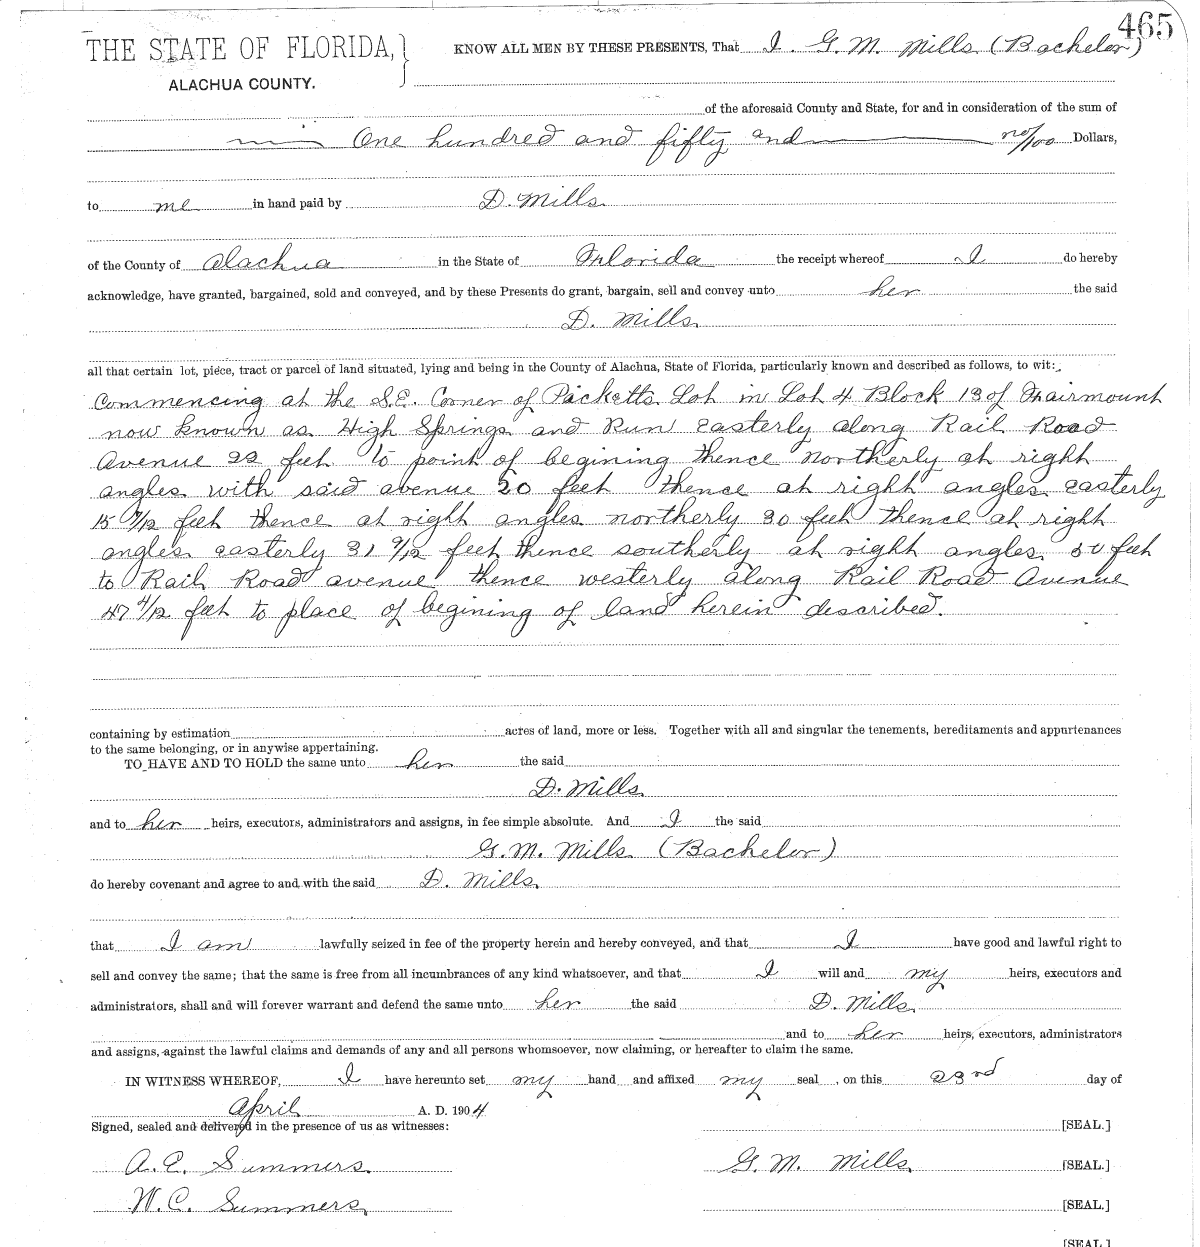 465
THE STATE OF FLORIDA, } KNOW ALL MEN BY THESE PRESENTS, That I G. M. Mills (Bachelor)
ALACHUA COUNTY.
of the aforesaid County and State, for and in consideration of the sum of
One hundred and fifty and no/100 Dollars,
to me in hand paid by D. Mills
of the County of Alachua in the State of Florida the receipt whereof I do hereby
acknowledge, have granted, bargained, sold and conveyed, and by these Presents do grant, bargain, sell and convey unto her the said
D. Mills
all that certain lot, piece, tract or parcel of land situated, lying and being in the County of Alachua, State of Florida, particularly known and described as follows, to wit:
Commencing at the S.E. Corner of Packetts Lot in Lot 4 Block 13 of Fairmount
now known as High Springs and Run easterly along Rail Road
Avenue 22 feet to point of begining thence northerly at right
angles with said avenue 20 feet thence at right angles easterly
15 7/12 feet thence at right angles northerly 30 feet thence at right
angles easterly 31 9/12 feet thence southerly at right angles 50 feet
to Rail Road avenue thence westerly along Rail Road Avenue
47 4/12 feet to place of begining of land herein described.
containing by estimation acres of land, more or less. Together with all and singular the tenements, hereditaments and appurtenances
to the same belonging, or in anywise appertaining.
TO HAVE AND TO HOLD the same unto her the said
D. Mills
and to her heirs, executors, administrators and assigns, in fee simple absolute. And I the said
G. M. Mills (Bachelor)
do hereby covenant and agree to and with the said D. Mills
that I am lawfully seized in fee of the property herein and hereby conveyed, and that I have good and lawful right to
sell and convey the same; that the same is free from all incumbrances of any kind whatsoever, and that I will and my heirs, executors and
administrators, shall and will forever warrant and defend the same unto her the said D. Mills
and to her heirs, executors, administrators
and assigns, against the lawful claims and demands of any and all persons whomsoever, now claiming, or hereafter to claim the same.
IN WITNESS WHEREOF, I have hereunto set my hand and affixed my seal , on this 23rd day of
April A. D. 1904
Signed, sealed and delivered in the presence of us as witnesses: [SEAL.]
A. E. Summers G. M. Mills [SEAL.]
W. C. Summers [SEAL.]
[SEAL.]